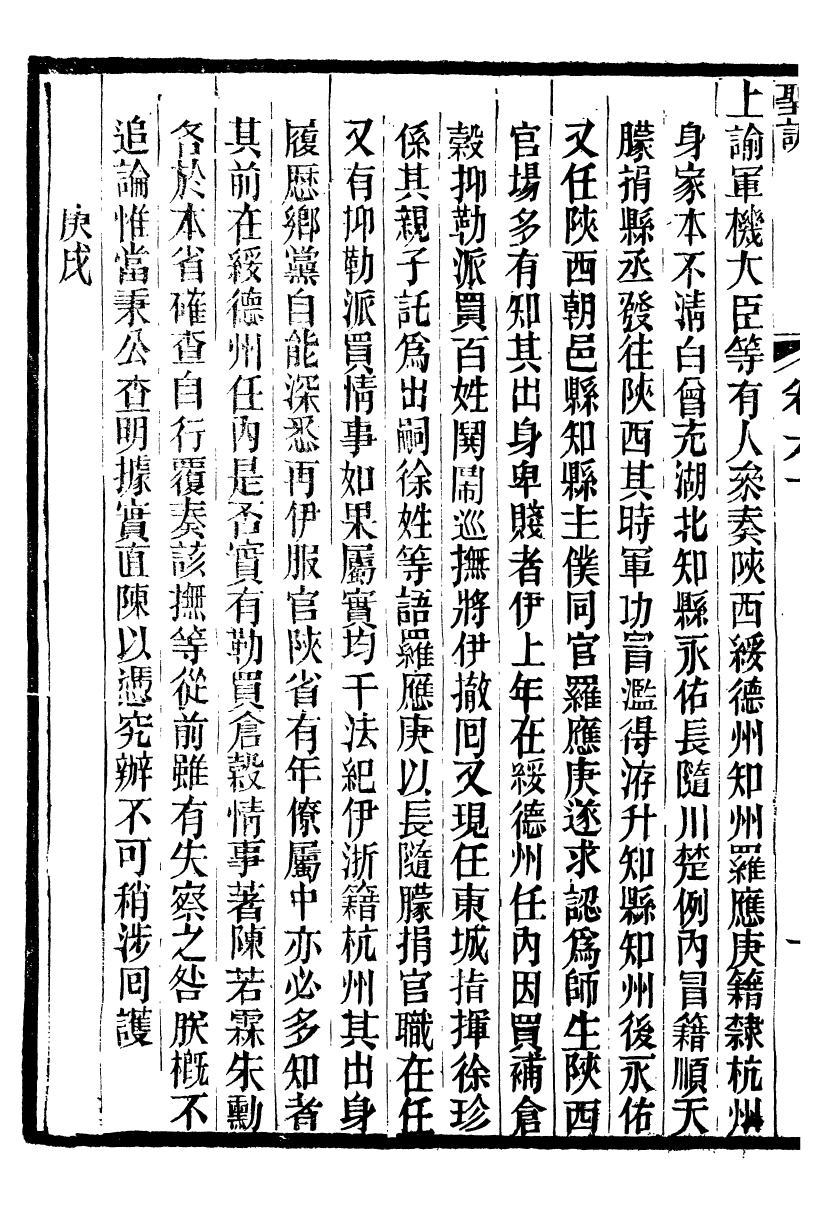 聖訓 卷六十 一
上諭軍機大臣等有人叅奏陝西綏德州知州羅應庚籍隸杭州
身家本不清白曾充湖北知縣永佑長隨川楚例內冒籍順天
朦捐縣丞發往陝西其時軍功冒濫得洊升知縣知州後永佑
又任陝西朝邑縣知縣主僕同官羅應庚遂求認爲師生陝西
官塲多有知其出身卑賤者伊上年在綏德州任內因買補倉
穀抑勒派買百姓鬨鬧巡撫將伊撤回又現任東城指揮徐珍
係其親子託爲出嗣徐姓等語羅應庚以長隨朦捐官職在任
又有抑勒派買情事如果屬實均干法紀伊浙籍杭州其出身
履歷鄉黨自能深悉再伊服官陝省有年僚屬中亦必多知者
其前在綏德州任內是否實有勒買倉穀情事著陳若霖朱勳
各於本省確查自行覆奏該撫等從前雖有失察之咎朕槪不
追論惟當秉公查明據實直陳以憑究辦不可稍涉回護
庚戌